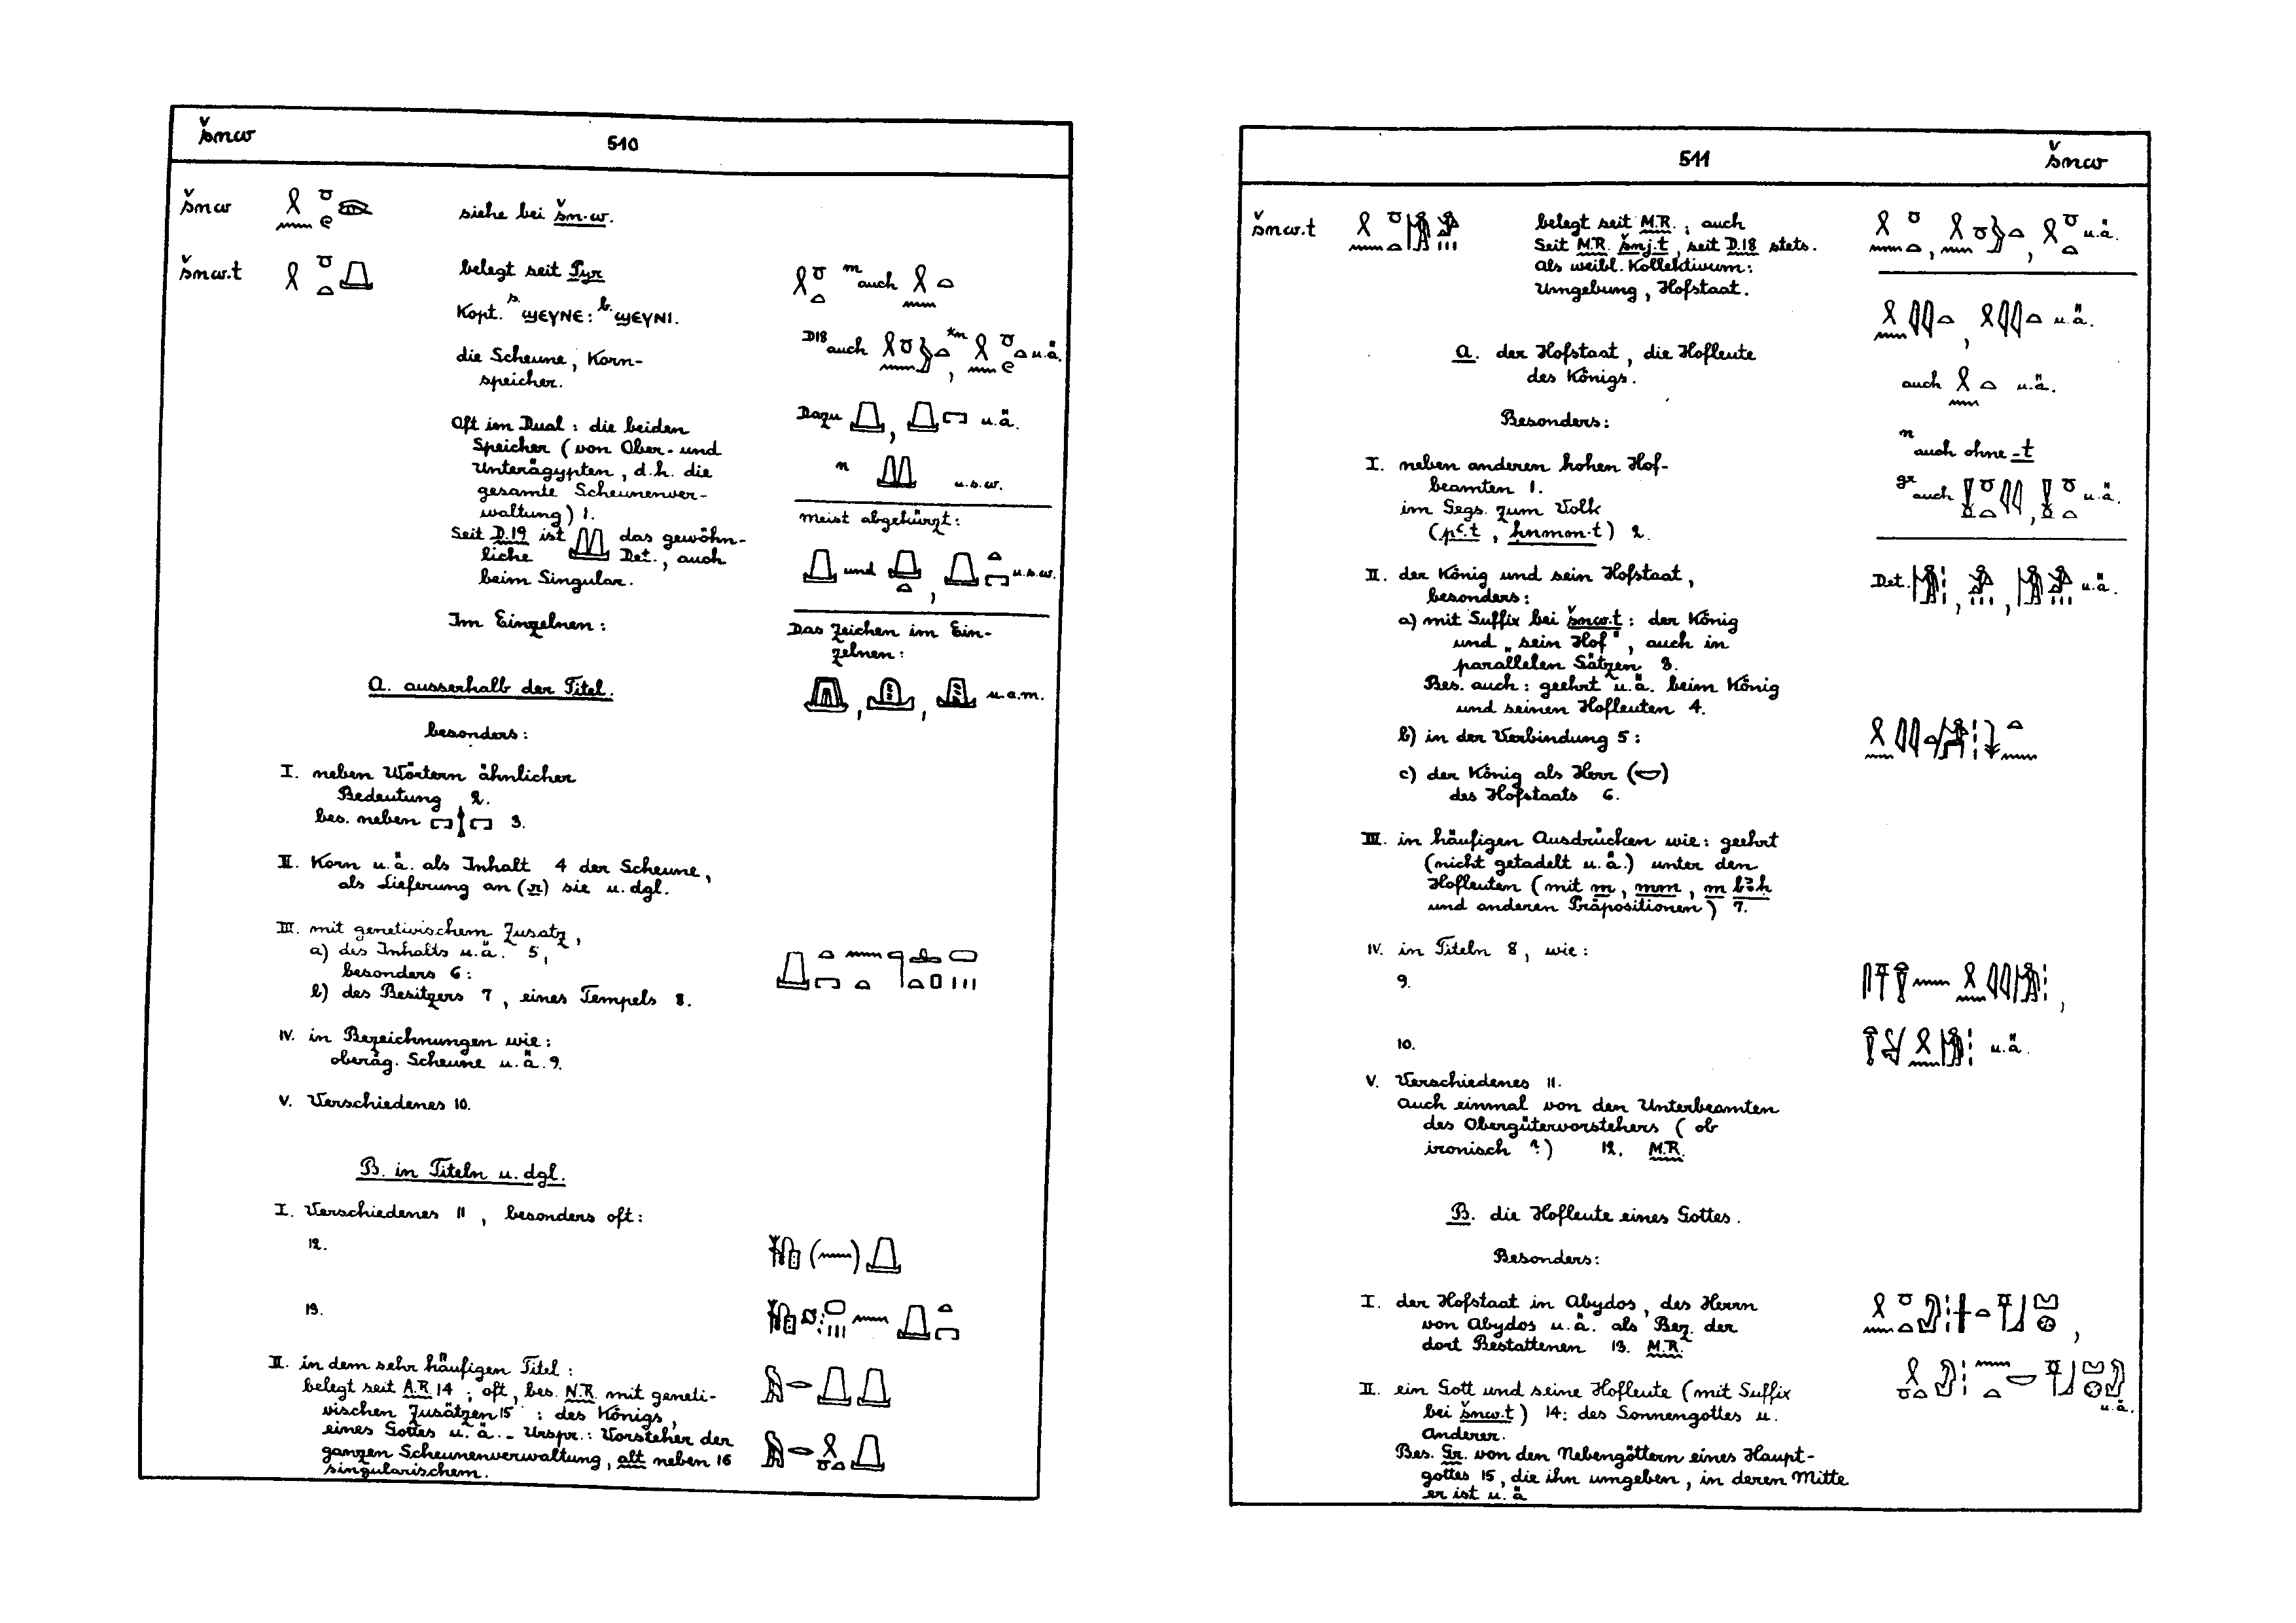 šnw
510
šnw
siehe bei šn·w.
šnw.t
belegt seit Pyr
Kopt. s. ϣЄYNЄ : b. ϣЄYNI.
die Scheune, Korn-
speicher.
Oft im Dual : die beiden
Speicher (von Ober- und
Unterägypten, d.h. die
gesamte Scheunenver-
waltung) 1.
Seit D.19 ist das gewöhn-
liche Det., auch
beim Singular.
Im Einzelnen :
m auch
D18 auch , *m u.ä.
Dazu , u.ä.
n u.s.w.
meist abgekürzt :
und , u.s.w.
Das Zeichen im Ein-
zelnen :
, , u.a.m.
A. ausserhalb der Titel.
besonders :
I. neben Wörtern ähnlicher
Bedeutung 2.
bes. neben 3.
II. Korn u.ä. als Inhalt 4 der Scheune,
als Lieferung an (r) sie u. dgl.
III. mit genetivischem Zusatz,
a) des Inhalts u.ä. 5,
besonders 6 :
b) des Besitzers 7, eines Tempels 8.
IV. in Bezeichnungen wie :
oberäg. Scheune u.ä. 9.
V. Verschiedenes 10.
B. in Titeln u. dgl.
I. Verschiedenes 11, besonders oft :
12.
13.
II. in dem sehr häufigen Titel :
belegt seit A.R. 14 ; oft, bes. N.R. mit geneti-
vischen Zusätzen 15 : des Königs,
eines Gottes u.ä. - Urspr. : Vorsteher der
ganzen Scheunenverwaltung, alt neben 16
singularischem.
511
šnw
šnw.t
belegt seit M.R. ; auch
Seit M.R. šnj.t, seit D.18 stets.
als weibl. Kollektivum :
Umgebung, Hofstaat.
, , u.ä.
, u.ä.
auch u.ä.
n auch ohne -t
gr auch , u.ä.
Det. , , u.ä.
a. der Hofstaat, die Hofleute
des Königs.
Besonders :
I. neben anderen hohen Hof-
beamten 1.
im Gegs. zum Volk
(pꜥ.t, ḥnmm·t) 2.
II. der König und sein Hofstaat,
besonders :
a) mit Suffix bei šnw.t : der König
und „sein Hof", auch in
parallelen Sätzen 3.
Bes. auch : geehrt u.ä. beim König
und seinen Hofleuten 4.
b) in der Verbindung 5 :
c) der König als Herr ( )
des Hofstaats 6.
III. in häufigen Ausdrücken wie : geehrt
(nicht getadelt u.ä.) unter den
Hofleuten (mit m, mm, m bꜣḥ
und anderen Präpositionen) 7.
IV. in Titeln 8, wie :
9.
10. u.ä.
V. Verschiedenes 11.
auch einmal von den Unterbeamten
des Obergütervorstehers (ob
ironisch ?) 12. M.R.
B. die Hofleute eines Gottes.
Besonders :
I. der Hofstaat in Abydos, des Herrn
von Abydos u.ä. als Bez. der
dort Bestattenen 13. M.R.
u.ä.
II. ein Gott und seine Hofleute (mit Suffix
bei šnw.t) 14 : des Sonnengottes u.
Anderer.
Bes. Gr. von den Nebengöttern eines Haupt-
gottes 15, die ihn umgeben, in deren Mitte
er ist u. ä